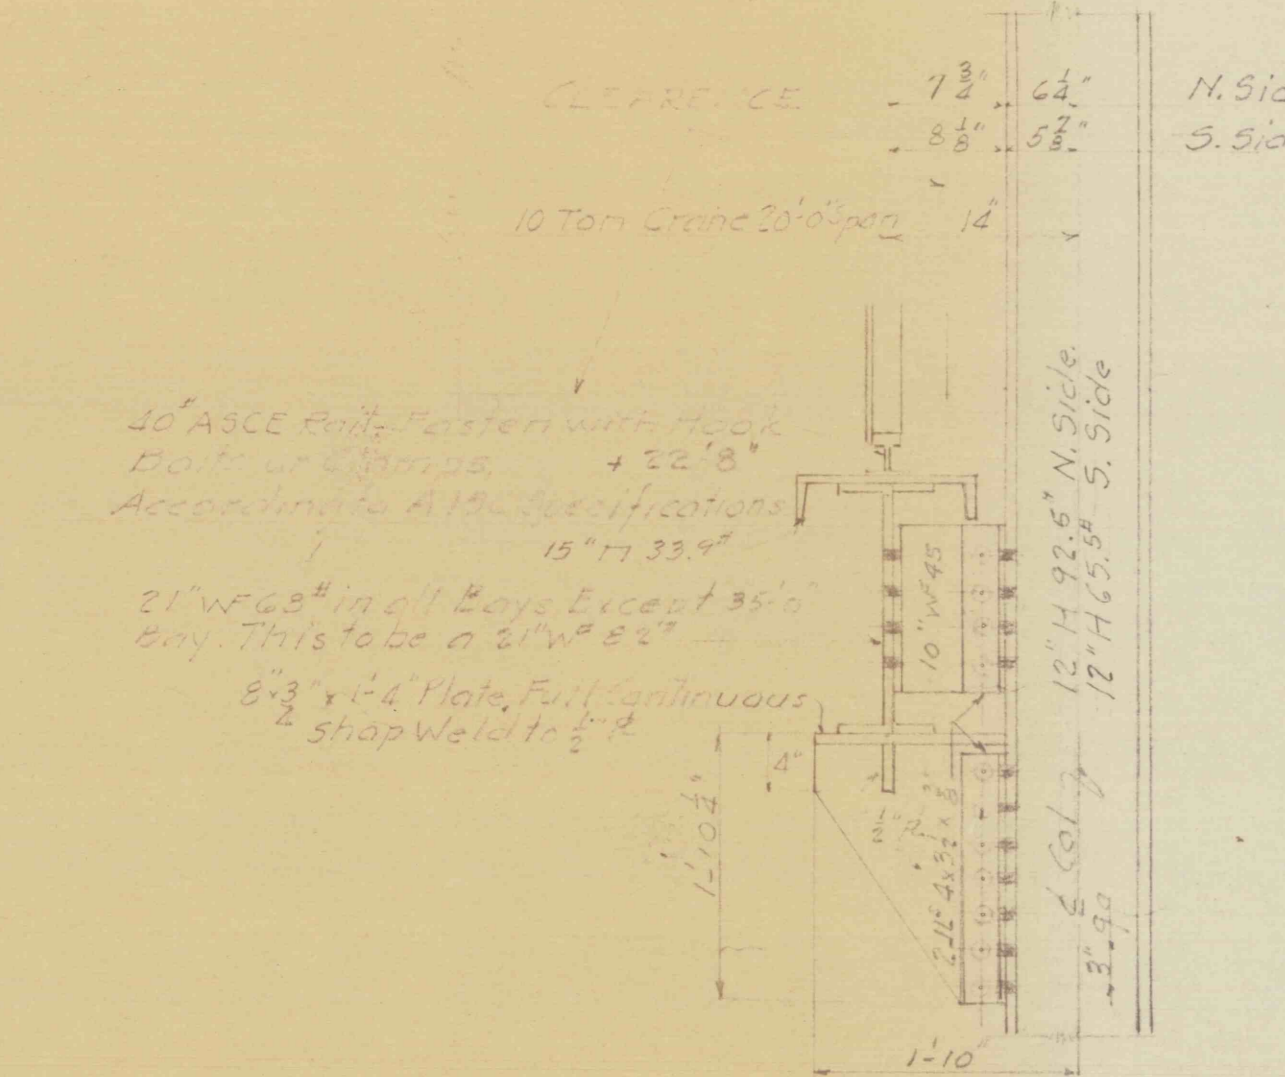 CLEARENCE
7 3/4" 6 1/4" N. Sid
8 1/8" 5 7/8" S. Sid
10 Ton Crane 20'-0" Span 14"
40# ASCE Rail- Fasten with Hook
Bolts or Clamps. + 22'8"
According to AISC Specifications
15" 33.9#
21" WF 63# in all Bays Except 35'-0"
Bay. This to be a 21" WF 82#
8" x 3/4" x 1'-4" Plate, Full Continuous
Shop Weld to 1/2" PL
10" WF 45
12" H 92.5# N. Side.
12" H 65.5# S. Side
4"
1'-10 1/4"
1/2" PL
2-Ls 4 x 3 1/2 x 3/8
℄ Col
3" ga
1'-10"